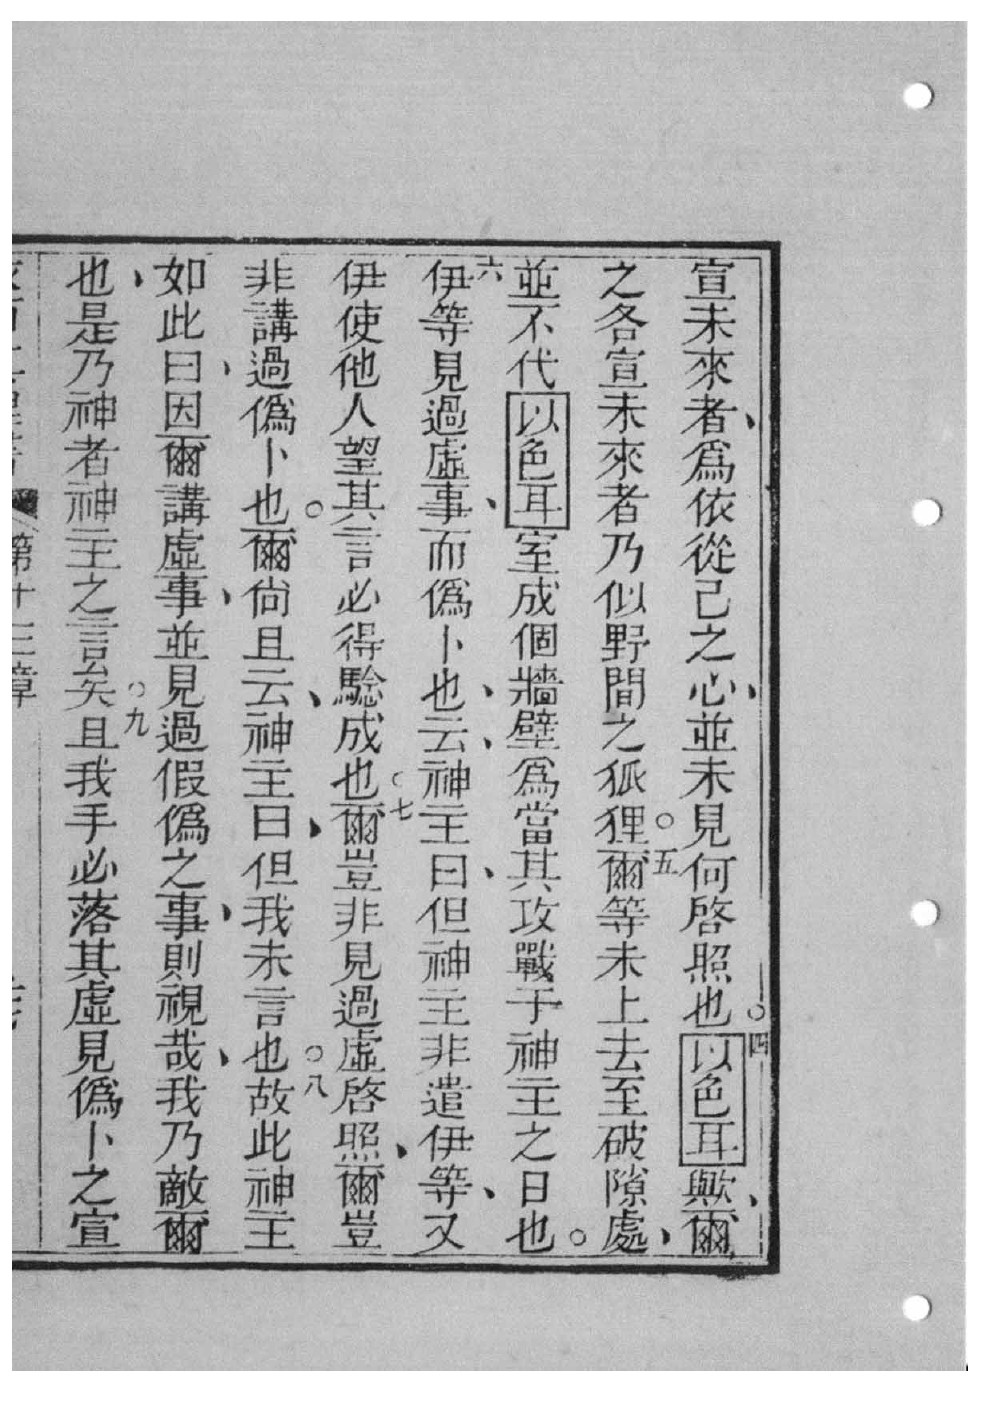 宣未來者、爲依從己之心、並未見何啓照也。四以色耳歟、爾
之各宣未來者乃似野間之狐狸。五爾等未上去至破隙處、
並不代以色耳室成個牆壁爲當其攻戰于神主之日也。
六伊等見過虛事、而僞卜也、云、神主曰、但神主非遣伊等、又
伊使他人望其言必得騐成也。七爾豈非見過虛啓照、爾豈
非講過僞卜也。爾尙且云、神主曰、但我未言也。八故此神主
如此曰、因爾講虛事、並見過假僞之事、則視哉、我乃敵爾
也、是乃神者神主之言矣。九且我手必落其虛見僞卜之宣
第十三章